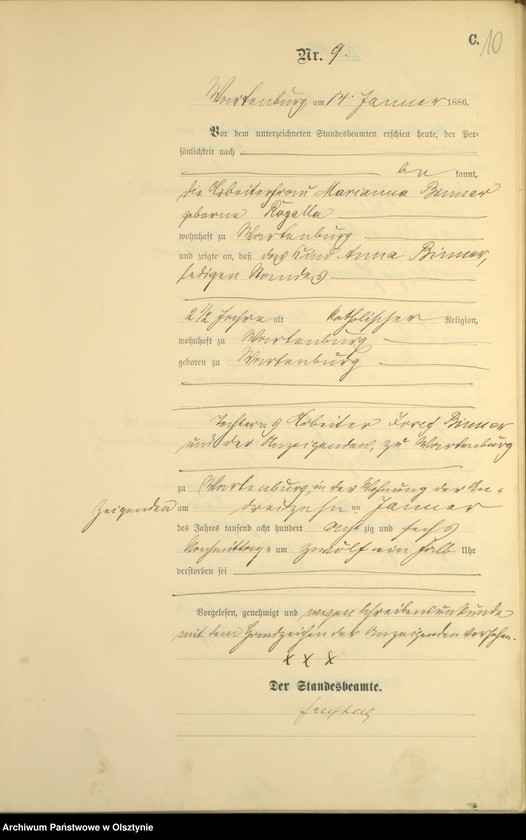 C.
10
Nr. 9.
Wartenburg am 14. Januar 1886.
Vor dem unterzeichneten Standesbeamten erschien heute, der Per-
sönlichkeit nach
be kannt,
die Arbeiterfrau Marianna
geborne Rogalla
wohnhaft zu Wartenburg
und zeigte an, daß das Kind Anna
ledigen Standes
2 1/2 Jahre alt katholischer Religion,
wohnhaft zu Wartenburg
geboren zu Wartenburg
Tochter des Arbeiter Josef
und der Anzeigenden, zu Wartenburg
zu Wartenburg, in der Wohnung der An-
zeigenden am dreizehn ten Januar
des Jahres tausend acht hundert acht zig und sechs
Nachmittags um zwölf ein halb Uhr
verstorben sei
Vorgelesen, genehmigt und wegen Schreibensunkunde
mit dem Handzeichen der Anzeigenden versehen.
x x x
Der Standesbeamte.
Archiwum Państwowe w Olsztynie